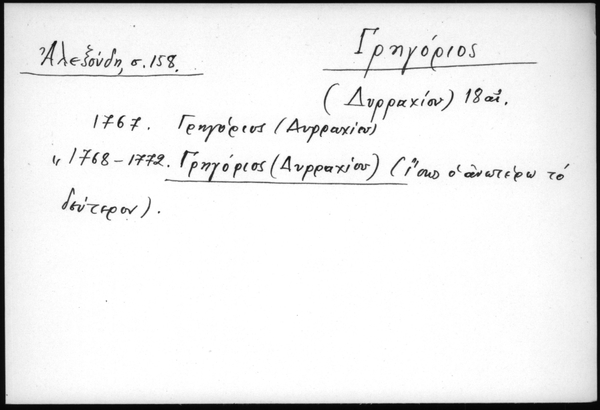 Ἀλεξούδη, σ. 158.
Γρηγόριος
(Δυρραχίου) 18 αἰ.
1767. Γρηγόριος (Δυρραχίου)
„ 1768-1772. Γρηγόριος (Δυρραχίου) (ἴσως ὁ ἀνωτέρω τό
δεύτερον).